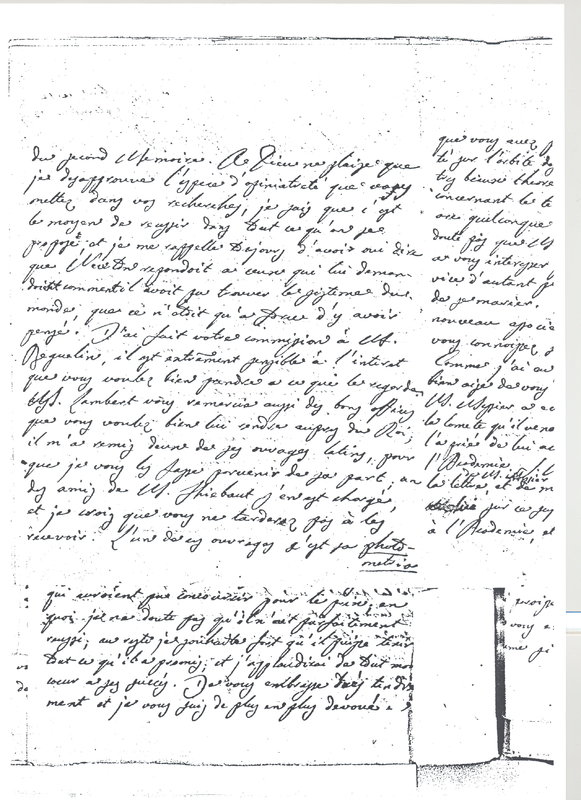 du second Memoire. A Dieu ne plaise que
je desapprouve l'espece d'opiniatreté que vous
mettez dans vos recherches, je sais que c'est
le moyen de reussir dans tout ce qu'on se
propose et je me rappelle toujours d'avoir oui dire
que Newton repondoit a ceux qui lui deman
doient comment il avoit pu trouver le systeme du
monde, que ce n'étoit qu'a force d'y avoir
pensé. J'ai fait votre commission à M.
Beguelin, il est extrêmement sensible à l'interet
que vous voulez bien prendre a ce qui le regarde
M. Lambert vous remercie aussi des bons offices
que vous voulez bien lui rendre aupres du Roi;
il m'a remis deux de ses ouvrages latins, pour
que je vous les fasse parvenir de sa part, un
des amis de M. Thiebaut s'en est chargé,
et je crois que vous ne tarderez pas à les
recevoir. L'un de ces ouvrages c'est sa photo-
metrie
qui auroient pu concourir pour le prix, en
quoi je ne doute pas qu'il n'ait parfaitement
reussi; au reste je souhaite fort qu'il puisse tenir
tout ce qu'il a promis, et j'applaudirai de tout mon
cœur a ses succès. Je vous embrasse très tendre
ment et je vous suis de plus en plus devoué
que vous avez
sur l'orbite de
très beaux theore
concernant le
orbe quelconque
doute pas que
a vous interesser
vice d'autant
de se marier.
nouveau associé
vous connoissez
Comme j'ai
bien aise de vous
M. Messier a
la comete qu'il
l'a prié de lui
l'Academie, il
de M. Messier
la lettre et de
sur ce
à l'Academie, et
vous